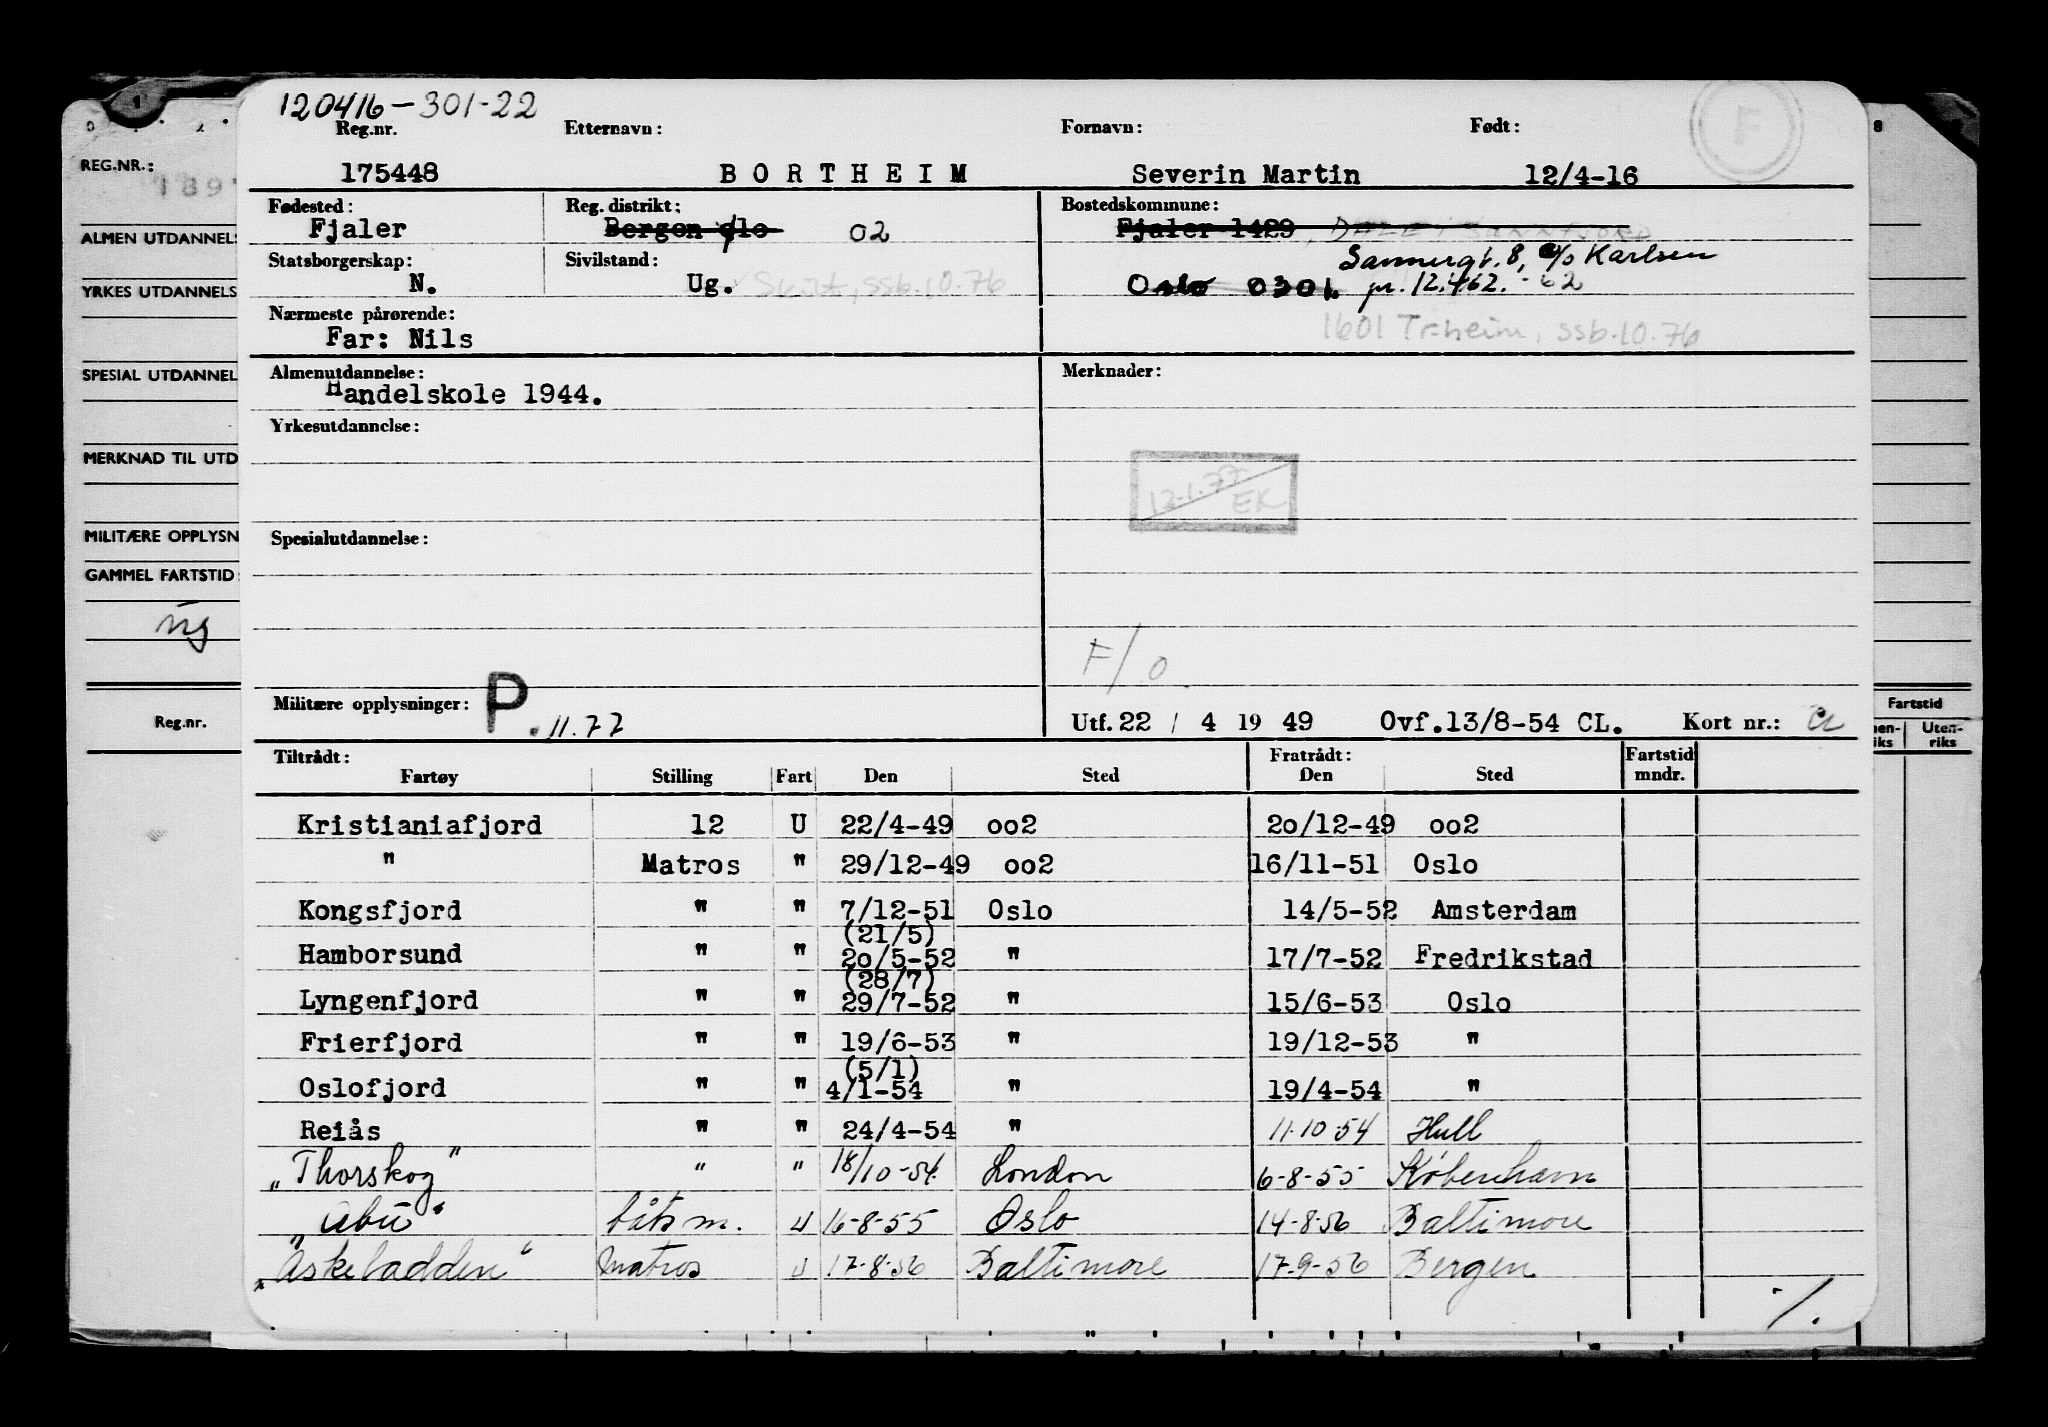 120416-301-22
Reg.nr. Etternavn: Fornavn: Født:
175448 BORTHEIM Severin Martin 12/4-16
Fødested: Reg. distrikt: Bostedskommune:
Fjaler Bergen Oslo 02 Fjaler 1429, DALE I SUNNFJORD
Sannergt. 8, c/o Karlsen
Statsborgerskap: Sivilstand:
N. Ug. Skilt, ssb.10.76 Oslo 0301. pr. 12.4.62.
Nærmeste pårørende: 1601 Tr.heim, ssb.10.76
Far: Nils
Almenutdannelse: Merknader:
Handelskole 1944.
Yrkesutdannelse:
12.1.77 EK
Spesialutdannelse:
F/O
Militære opplysninger: P. 11.77 Utf. 22 / 4 19 49 Ovf.13/8-54 CL. Kort nr.:
Tiltrådt: Fratrådt: Fartstid
Fartøy Stilling Fart Den Sted Den Sted mndr.
Kristianiafjord 12 U 22/4-49 oo2 2o/12-49 oo2
" Matros " 29/12-49 oo2 16/11-51 Oslo
Kongsfjord " " 7/12-51 Oslo 14/5-52 Amsterdam
(21/5)
Hamborsund " " 2o/5-52 " 17/7-52 Fredrikstad
(28/7)
Lyngenfjord " " 29/7-52 " 15/6-53 Oslo
Frierfjord " " 19/6-53 " 19/12-53 "
(5/1)
Oslofjord " " 4/1-54 " 19/4-54 "
Reiås " " 24/4-54 " 11.10 54 Hull
„Thorskog" " " 18/10-54. London 6-8-55 København
„Abu" båtsm. U 16-8-55 Oslo 14-8-56 Baltimore
„Askeladden" Matros U 17-8-56 Baltimore 17-9-56 Bergen
-/.
REG.NR.:
189
ALMEN UTDANNELS
YRKES UTDANNELS
SPESIAL UTDANNEL
MERKNAD TIL UTD
MILITÆRE OPPLYSN
GAMMEL FARTSTID
ug
Reg.nr.
8
Fartstid
nen-riks Uten-riks